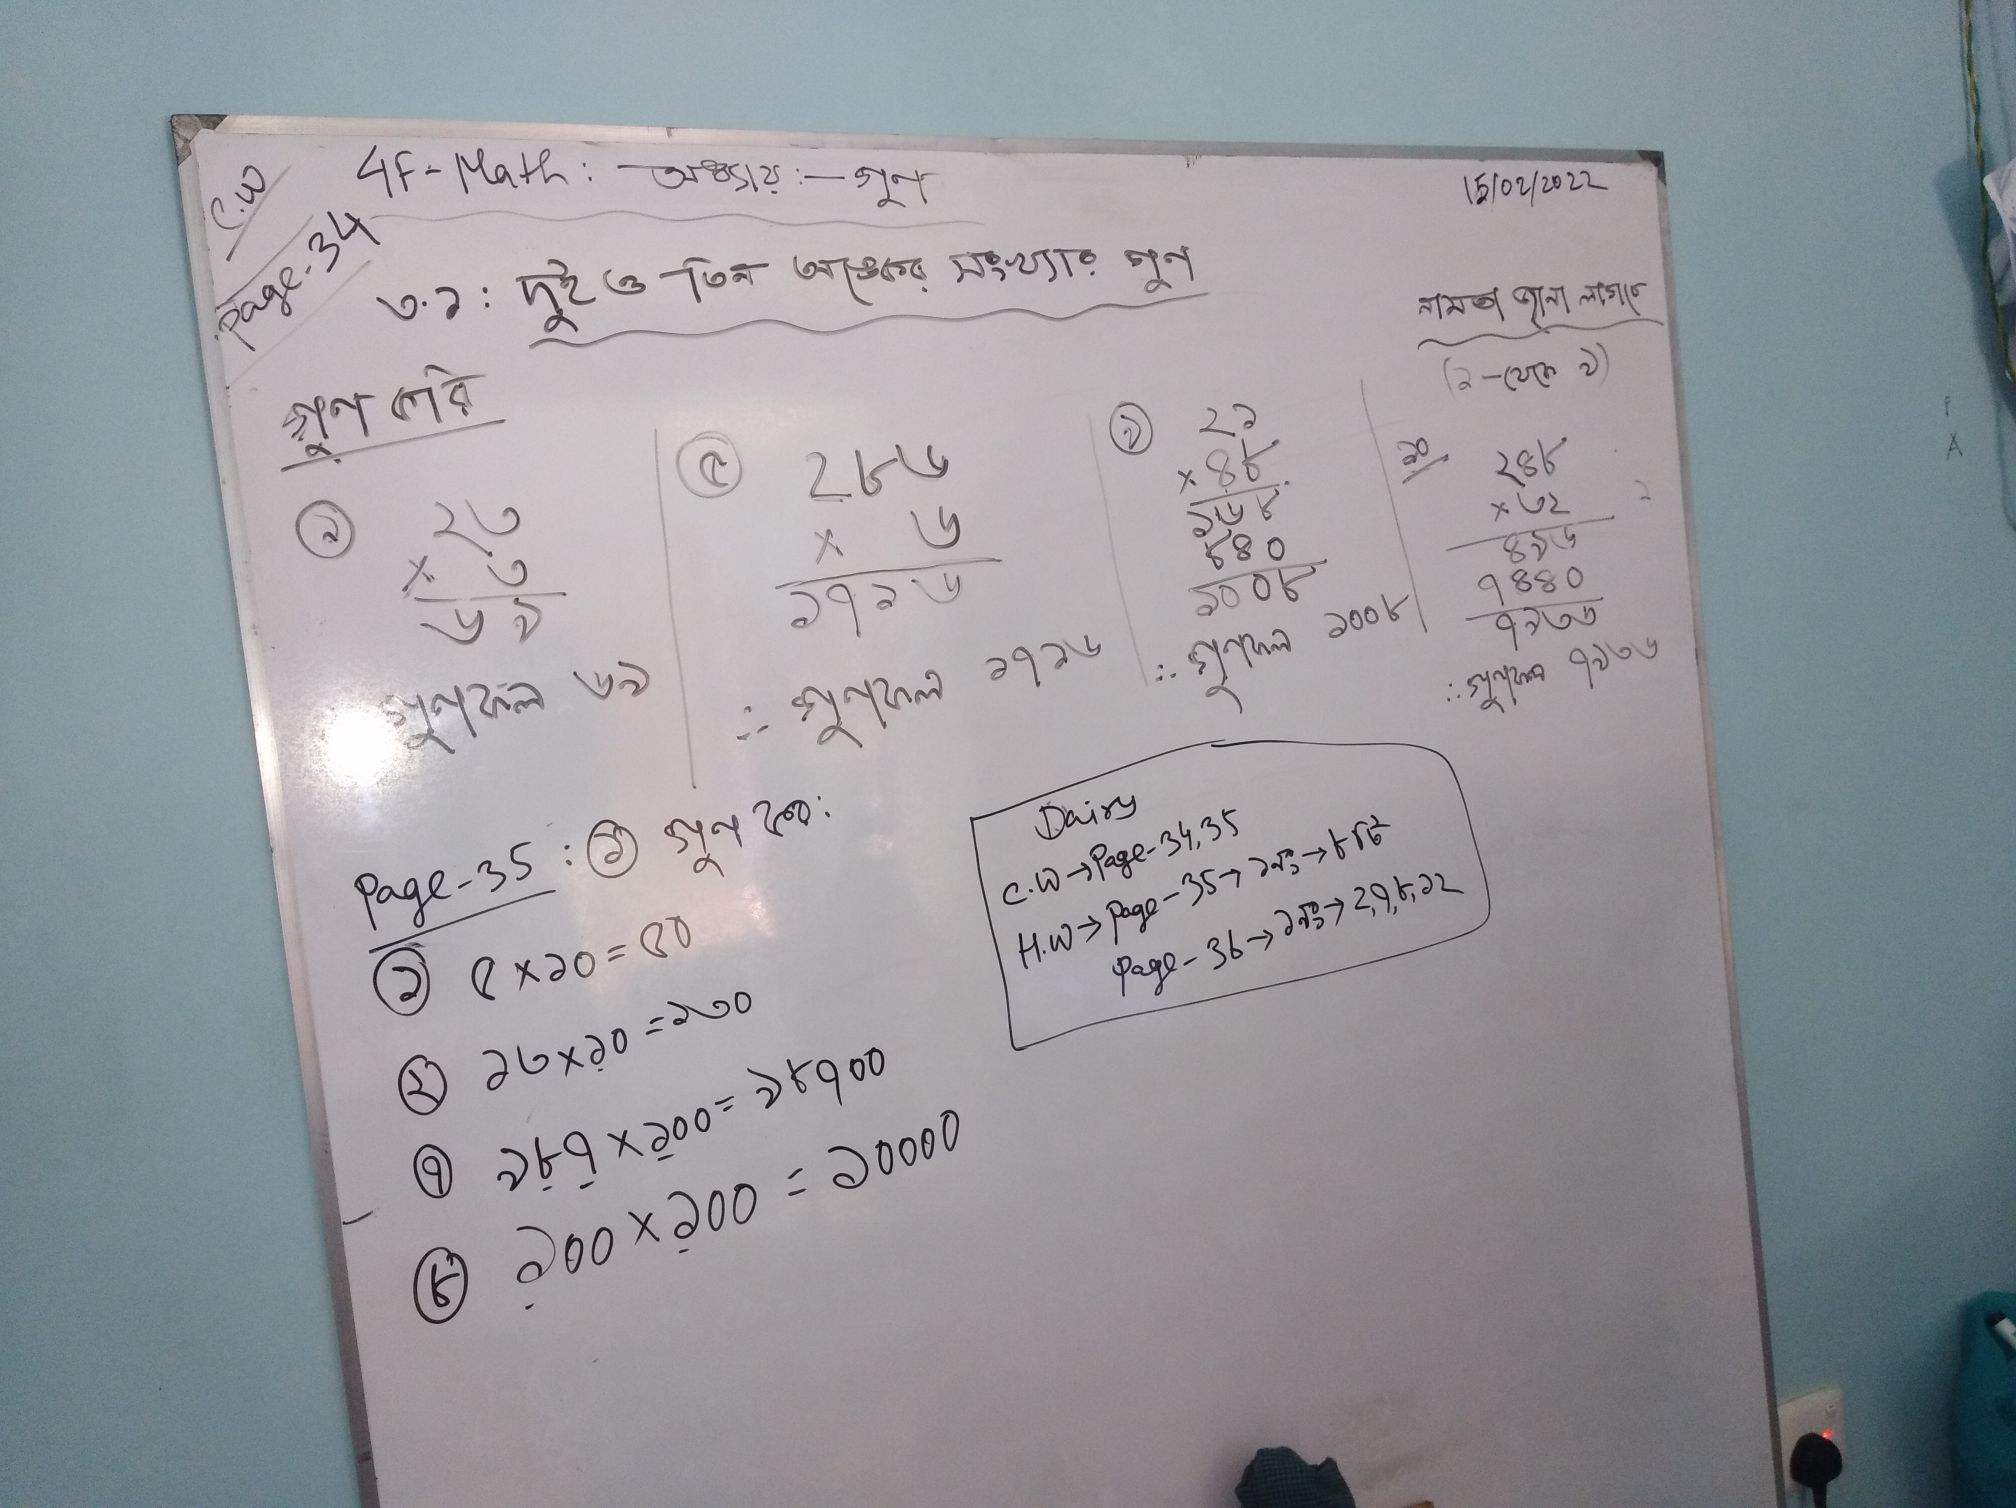 C.W
Page-34
4F-Math: অধ্যায়:- গুণ
15/02/2022
৩.১: দুই ও তিন অঙ্কের সংখ্যার গুণ
নামতা জানা লাগবে
(১-থেকে ৯)
গুণ করি
১
২৩
× ৩
৬৯
গুণফল ৬৯
৫
২৮৬
× ৬
১৭১৬
∴ গুণফল ১৭১৬
৯
২১
×৪৮
১৬৮
৮৪০
১০০৮
∴ গুণফল ১০০৮
১০
২৪৮
×৩২
৪৯৬
৭৪৪০
৭৯৩৬
∴ গুণফল ৭৯৩৬
Page-35: ১ গুণ কর:
১ ৫×১০=৫০
২ ১৩×১০=১৩০
৭ ৯৮৭×১০০=৯৮৭০০
৮ ১০০×১০০=১০০০০
Dairy
C.W→Page-34,35
H.W→Page-35→১নং→৮টি
Page-36→১নং→২,৭,৮,১২